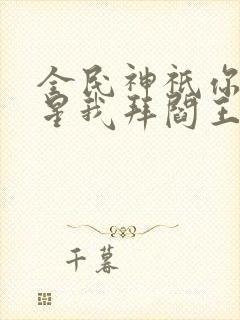 全民神祇你
星我拜阎王
千暮